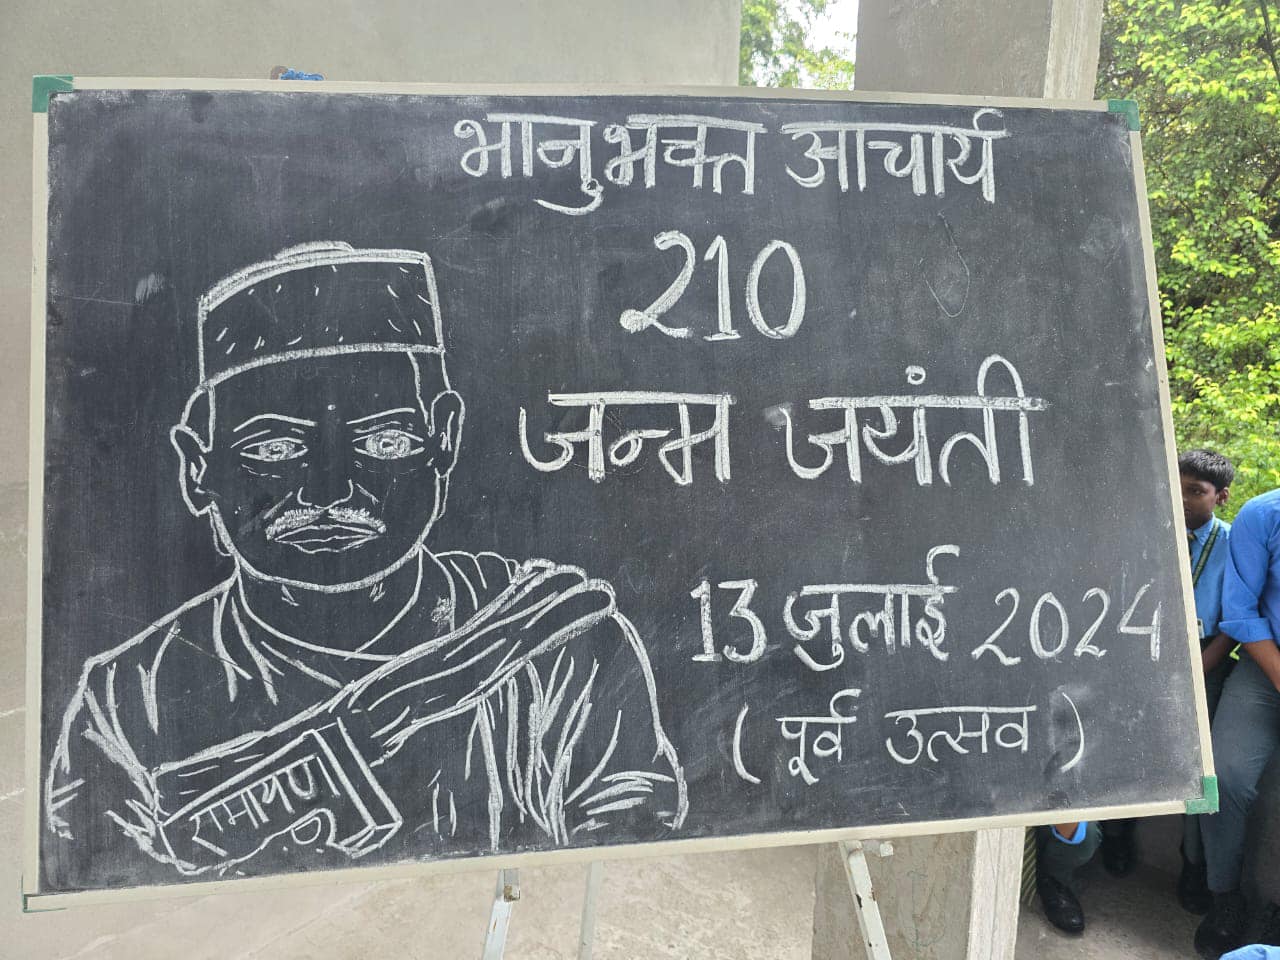 भानुभक्त आचार्य
210
जन्म जयंती
13 जुलाई 2024
( पूर्व उत्सव )
रामायण